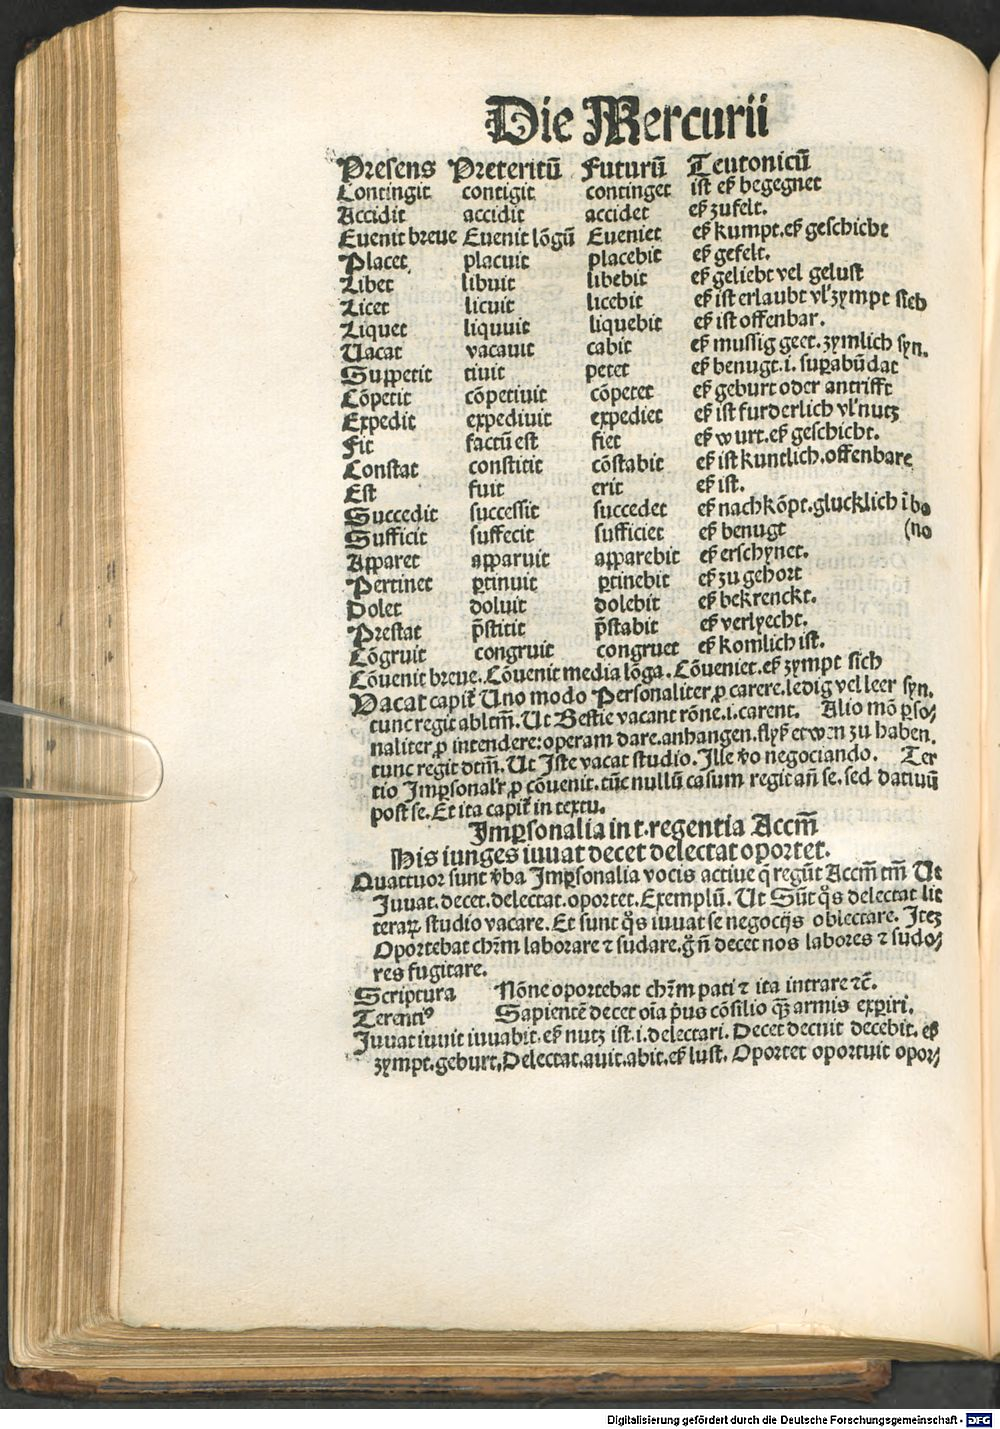 Die Mercurii
Presens Preteritū Futurū Teutonicū
Contingit contigit continget ist eß begegnet
Accidit accidit accidet eß zufelt.
Euenit breue Euenit lōgū Eueniet eß kumpt.eß geschicht
Placet placuit placebit eß gefelt.
Libet libuit libebit eß geliebt vel gelust
Licet licuit licebit eß ist erlaubt vl' zympt sich
Liquet liquuit liquebit eß ist offenbar.
Uacat vacauit cabit eß mussig geet.zymlich syn.
Suppetit tiuit petet eß benugt.i.suꝑabūdat
Cōpetit cōpetiuit cōpetet eß geburt oder antrifft
Expedit expediuit expediet eß ist furderlich vl' nutz
Fit factū est fiet eß wurt.eß geschicht.
Constat constitit cōstabit eß ist kuntlich.offenbare
Est fuit erit eß ist.
Succedit successit succedet eß nach kōpt.glucklich ī bo
Sufficit suffecit sufficiet eß benugt (no
Apparet apparuit apparebit eß erschynet.
Pertinet ꝑtinuit ꝑtinebit eß zu gehort
Dolet doluit dolebit eß bekrenckt.
Prestat p̄stitit p̄stabit eß verlyecht.
Cōgruit congruit congruet eß komlich ist.
Cōuenit breue.Cōuenit media lōga.Cōueniet.eß zympt sich
Vacat capit᷑ Uno modo Personaliter ꝓ carere.ledig vel leer syn.
tunc regit abltm̄.Ut Bestie vacant rōne.i.carent. Alio mō ꝑso⸗
naliter ꝓ intendere:operam dare.anhangen.flyß et wen zu haben.
tunc regit dtm̄.Ut Iste vacat studio.Ille v̄o negociando. Ter
tio Imꝑsonalr̄ ꝓ cōuenit.tūc nullū casum regit an̄ se.sed datiuū
post se.Et ita capit᷑ in textu.
Imꝑsonalia in t.regentia Accm̄
His iunges iuuat decet delectat oportet.
Quattuor sunt v̄ba Imꝑsonalia vocis actiue q̄ regūt Accm̄ tm̄ Ut
Iuuat.decet.delectat.oportet.Exemplū.Ut Sūt q̄s delectat lit
teraꝝ studio vacare.Et sunt q̄s iuuat se negocijs oblectare. Itez
Oportebat chr̄m laborare ⁊ sudare.g̊ n̄ decet nos labores ⁊ sudo⸗
res fugitare.
Scriptura Nōne oportebat chr̄m pati ⁊ ita intrare ⁊c̄.
Terentiꝰ Sapientē decet oīa p̄us cōsilio qꝫ armis exꝑiri.
Iuuat iuuit iuuabit.eß nutz ist.i.delectari. Decet decuit decebit.eß
zympt.geburt.Delectat.auit.abit.eß lust. Oportet oportuit opor⸗
Digitalisierung gefördert durch die Deutsche Forschungsgemeinschaft - DFG